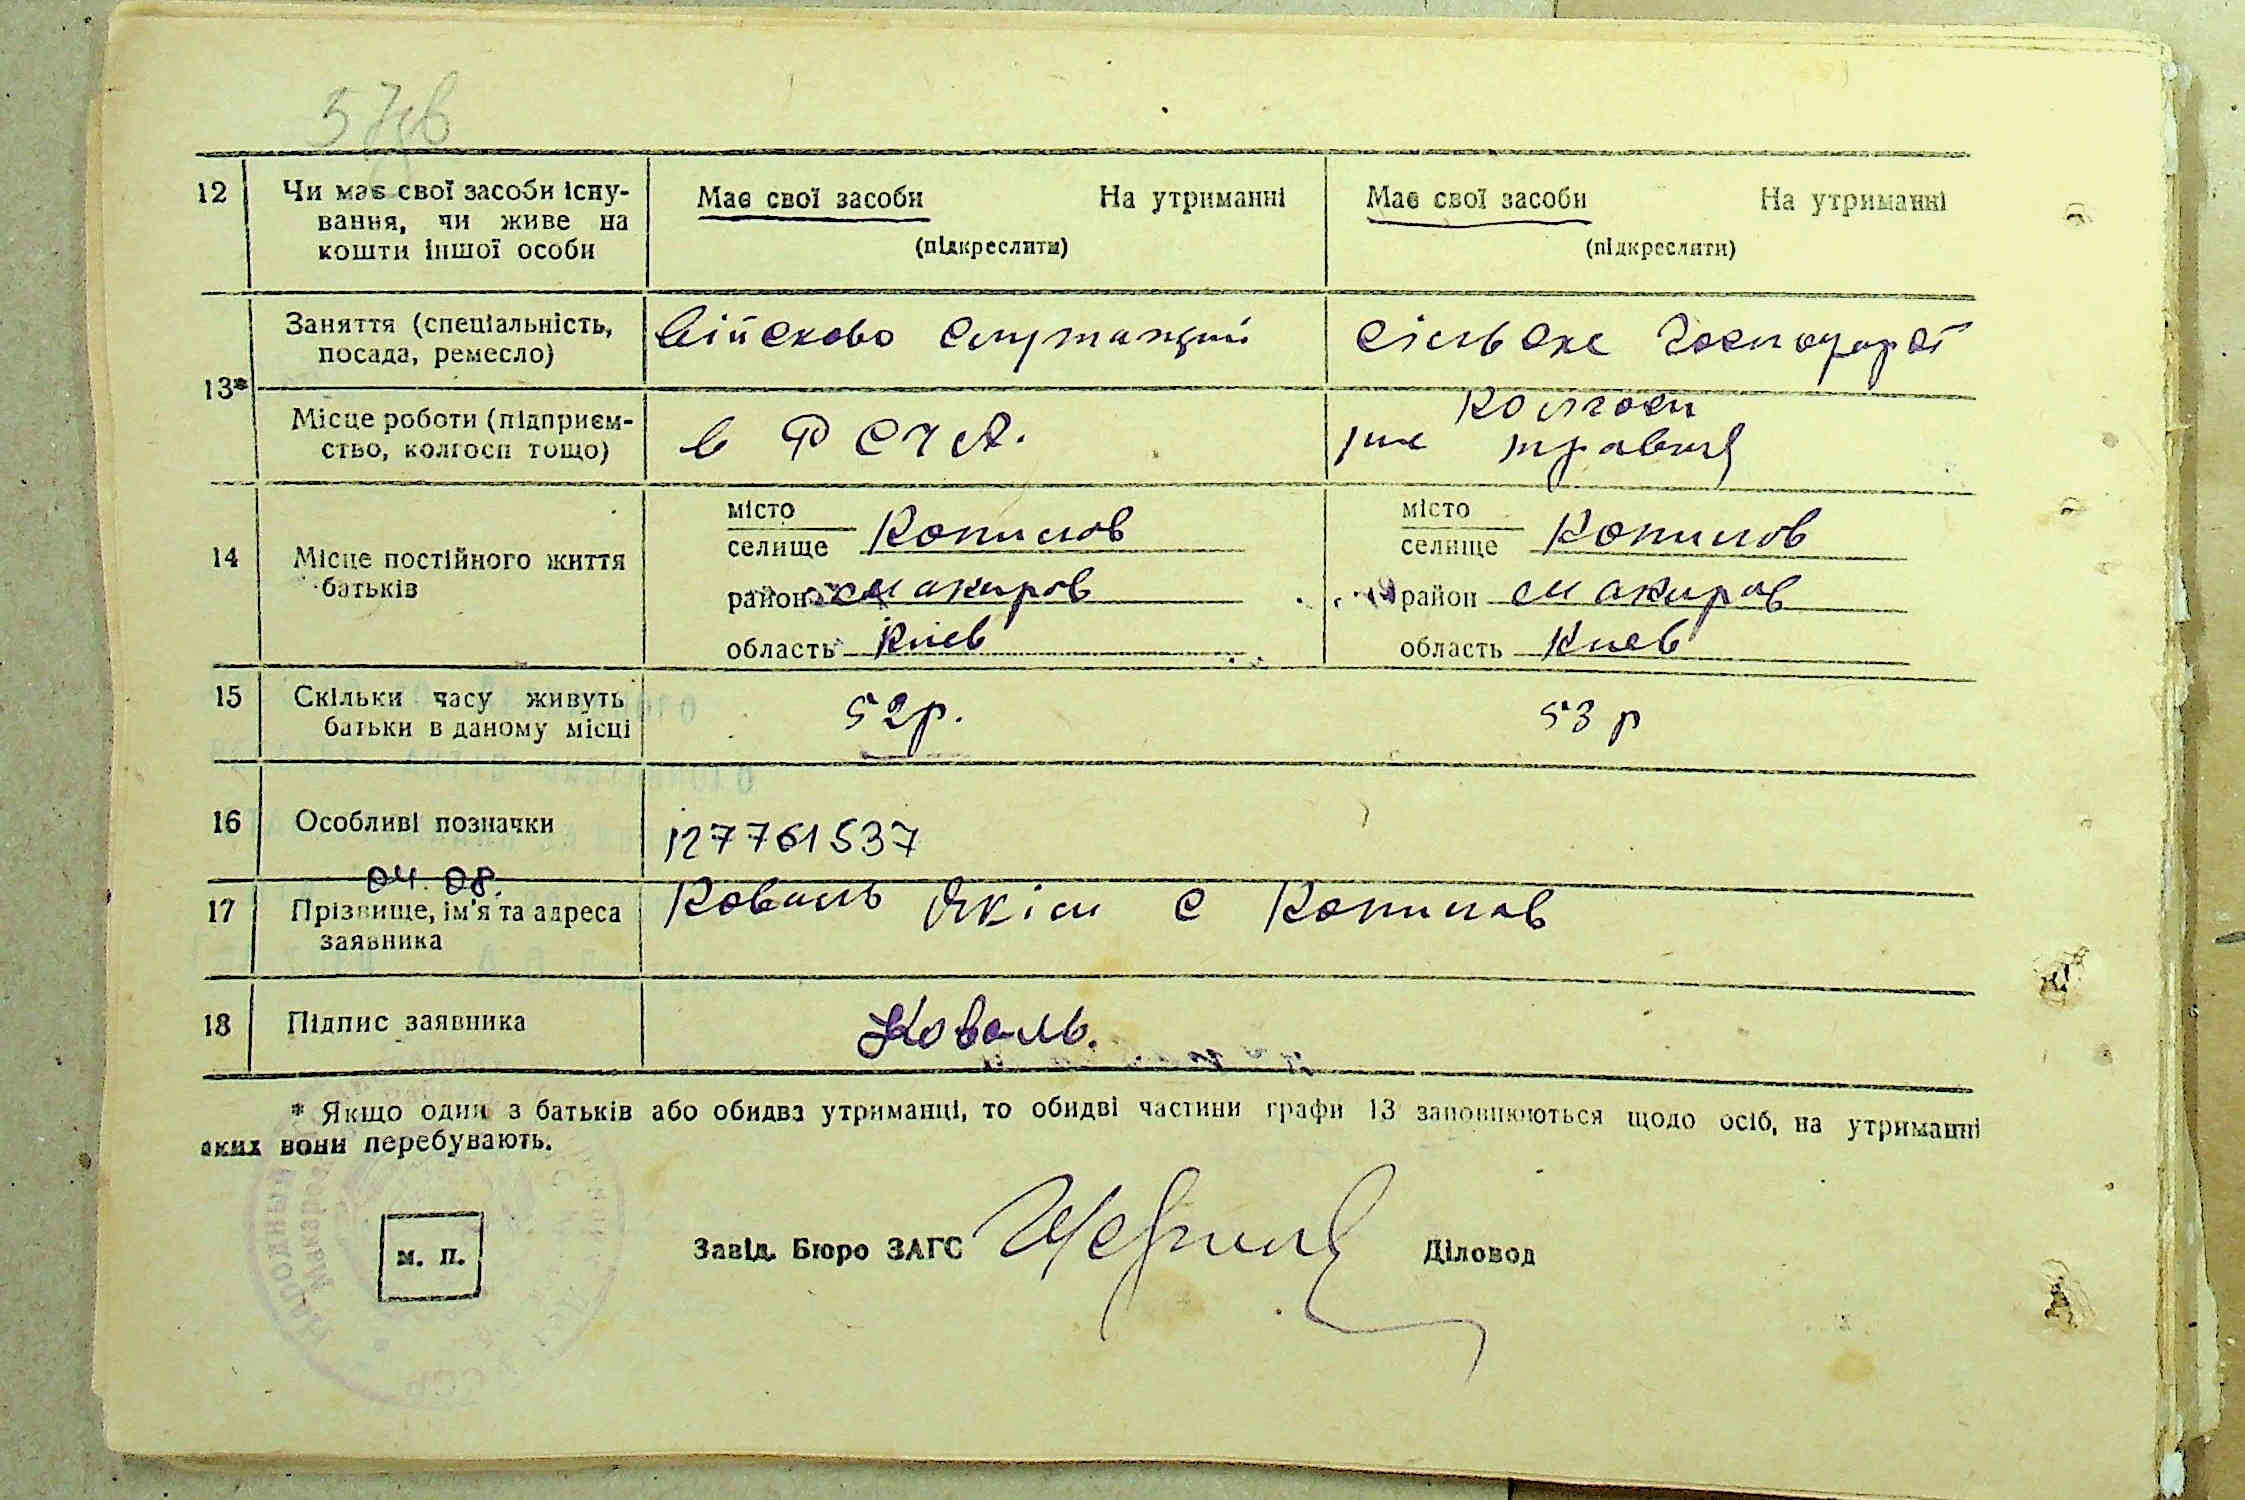 57зв
12 Чи має свої засоби існу-
вання, чи живе на
кошти іншої особи
Має свої засоби На утриманні
(підкреслити)
Має свої засоби На утриманні
(підкреслити)
13*
Заняття (спеціальність,
посада, ремесло)
Військово служащий
Сільське господарст
Місце роботи (підприєм-
ство, колгосп тощо)
в РСЧА.
Колгосп
1ше травня
14 Місце постійного життя
батьків
місто
селище Копилов
район Макаров
область Киев
місто
селище Копилов
район Макаров
область Киев
15 Скільки часу живуть
батьки в даному місці
52р.
53 р
16 Особливі позначки
127761537
04. 08.
17 Прізвище, ім'я та адреса
заявника
Коваль Якім с Копилов
18 Підпис заявника
Коваль.
* Якщо один з батьків або обидва утриманці, то обидві частини графи 13 заповнюються щодо осіб, на утриманні
яких вони перебувають.
м. п.
Завід. Бюро ЗАГС
Діловод